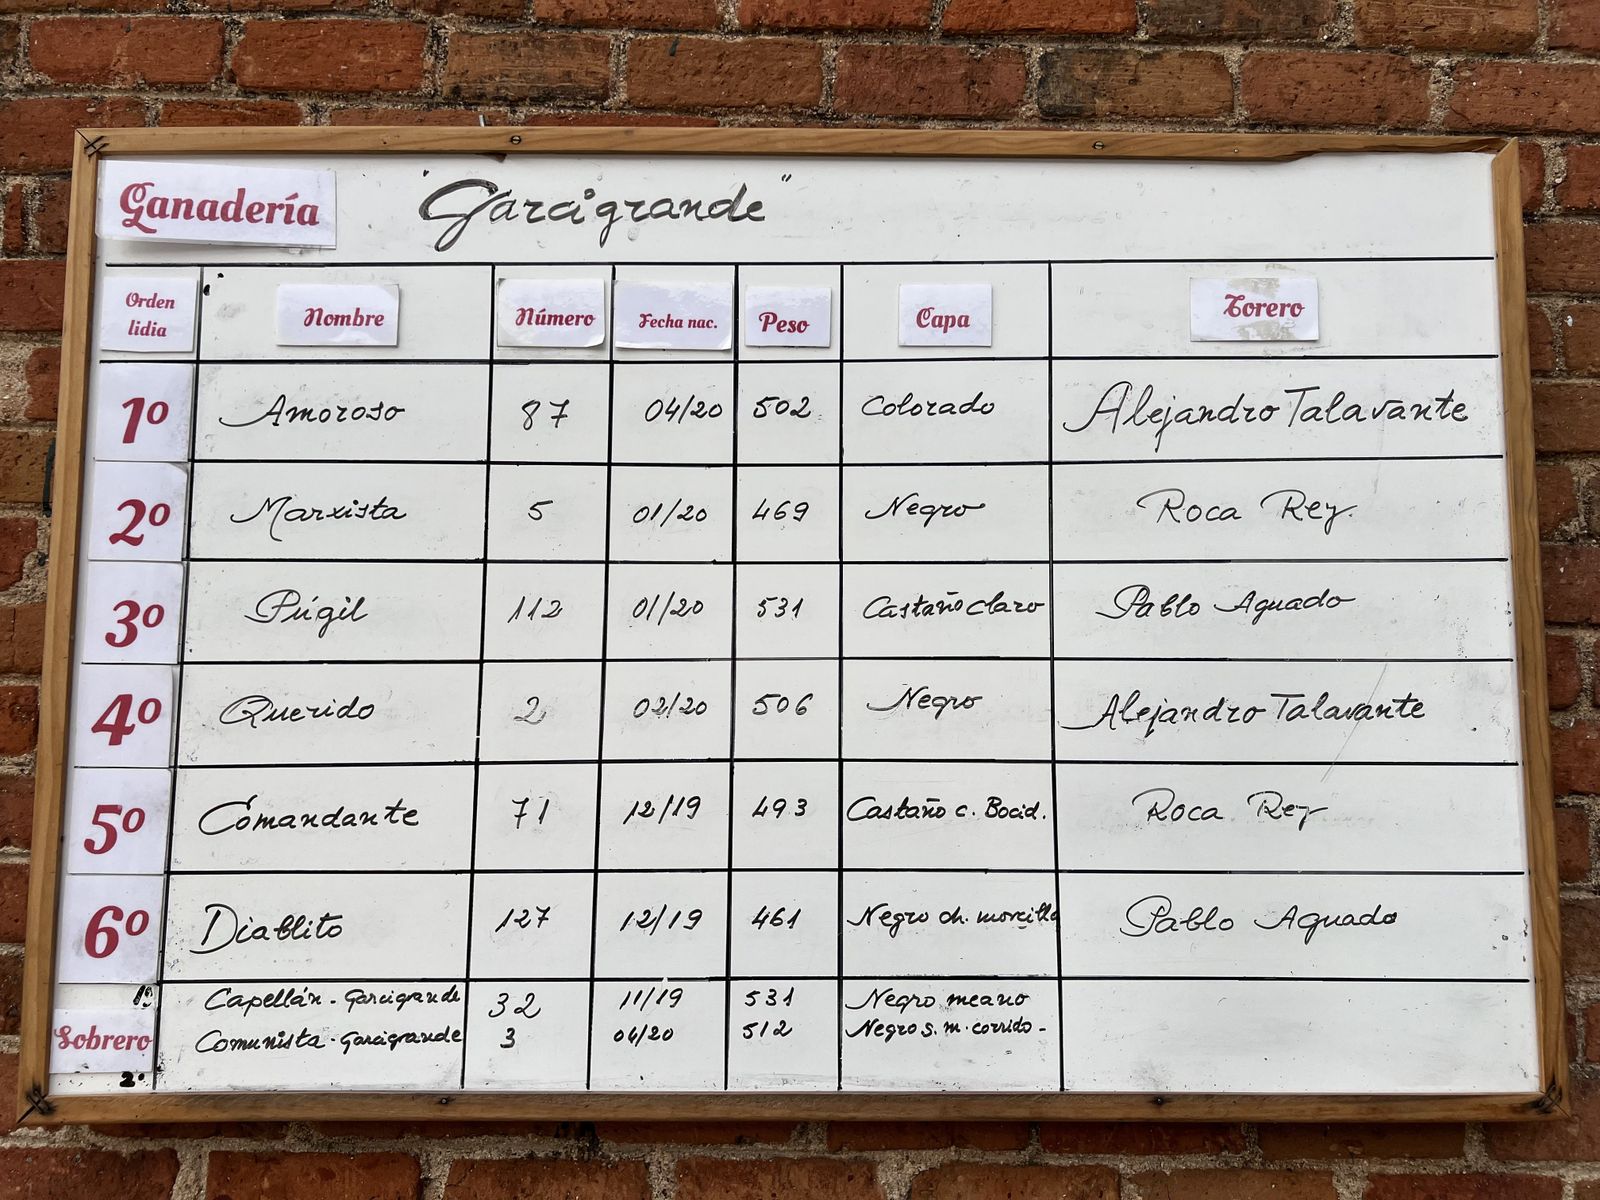 Ganadería "Garcigrande"
Orden lidia Nombre Número Fecha nac. Peso Capa Torero
1º Amoroso 87 04/20 502 Colorado Alejandro Talavante
2º Marxista 5 01/20 469 Negro Roca Rey.
3º Púgil 112 01/20 531 Castaño claro Pablo Aguado
4º Querido 2 02/20 506 Negro Alejandro Talavante
5º Comandante 71 12/19 493 Castaño c. Bocid. Roca Rey
6º Diablito 127 12/19 461 Negro ch. morcillo Pablo Aguado
1º Capellán - Garcigrande 32 11/19 531 Negro meano
Sobrero Comunista - Garcigrande 3 04/20 512 Negro s. m. corrido -
2º